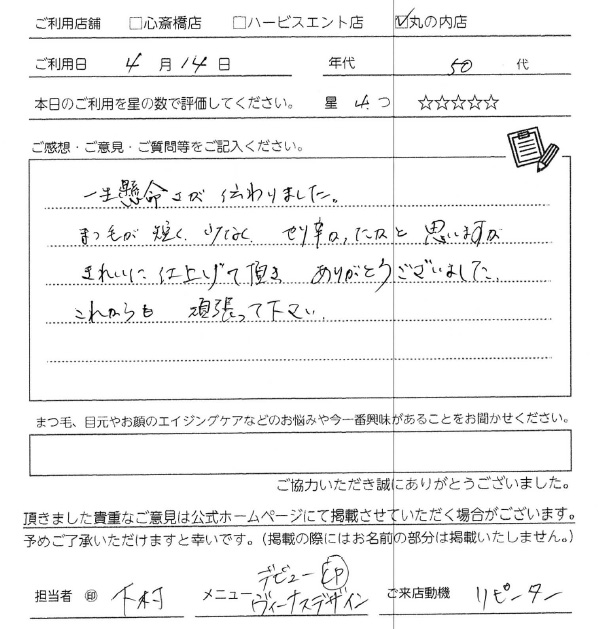 ご利用店舗 □心斎橋店 □ハービスエント店 ☑丸の内店
ご利用日 4 月 14 日 年代 50 代
本日のご利用を星の数で評価してください。 星 4 つ ☆☆☆☆☆
ご感想・ご意見・ご質問等をご記入ください。
一生懸命さが 伝わりました。
まつ毛が 短く、少なく、やり辛かったかと 思いますが
きれいに 仕上げて頂き ありがとうございました。
これからも 頑張って下さい。
まつ毛、目元やお顔のエイジングケアなどのお悩みや今一番興味があることをお聞かせください。
ご協力いただき誠にありがとうございました。
頂きました貴重なご意見は公式ホームページにて掲載させていただく場合がございます。
予めご了承いただけますと幸いです。（掲載の際にはお名前の部分は掲載いたしません。）
デビュー
担当者 ㊞ 下村 メニュー ヴィーナスデザイン ご来店動機 リピーター